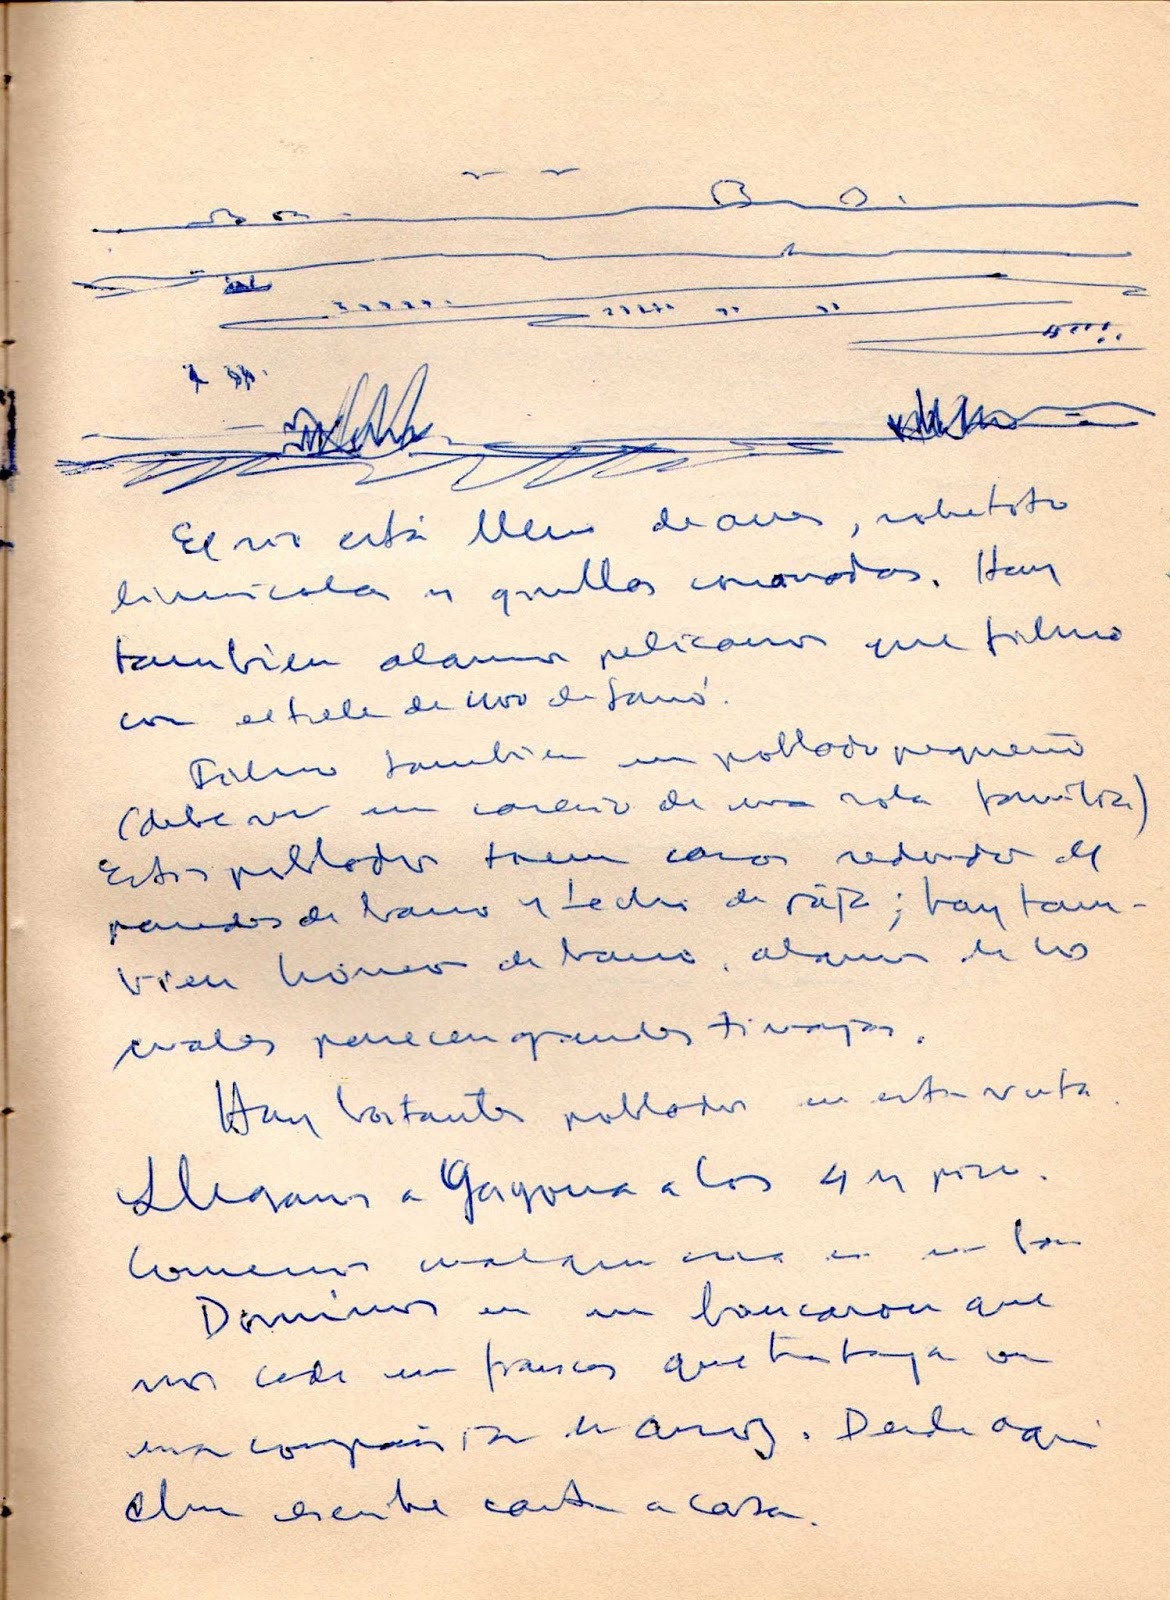 El río está lleno de aves, sobretodo
limícolas y grullas coronadas. Hay
también algunos pelícanos que filmo
con el tele de 400 de
Filmo también un poblado pequeño
(debe ser un caserío de una sola familia)
Estos poblados tienen casas redondas de
paredes de barro y techo de paja; hay tam-
bien hornos de barro, algunos de los
cuales parecen grandes tinajas.
Hay bastantes poblados en esta ruta.
Llegamos a a las 4 y pico.
Comemos cualquier cosa en un bar
Dormimos en un que
nos cede un francés que trabaja en
una compañía de arroz. Desde aquí
escribe carta a casa.